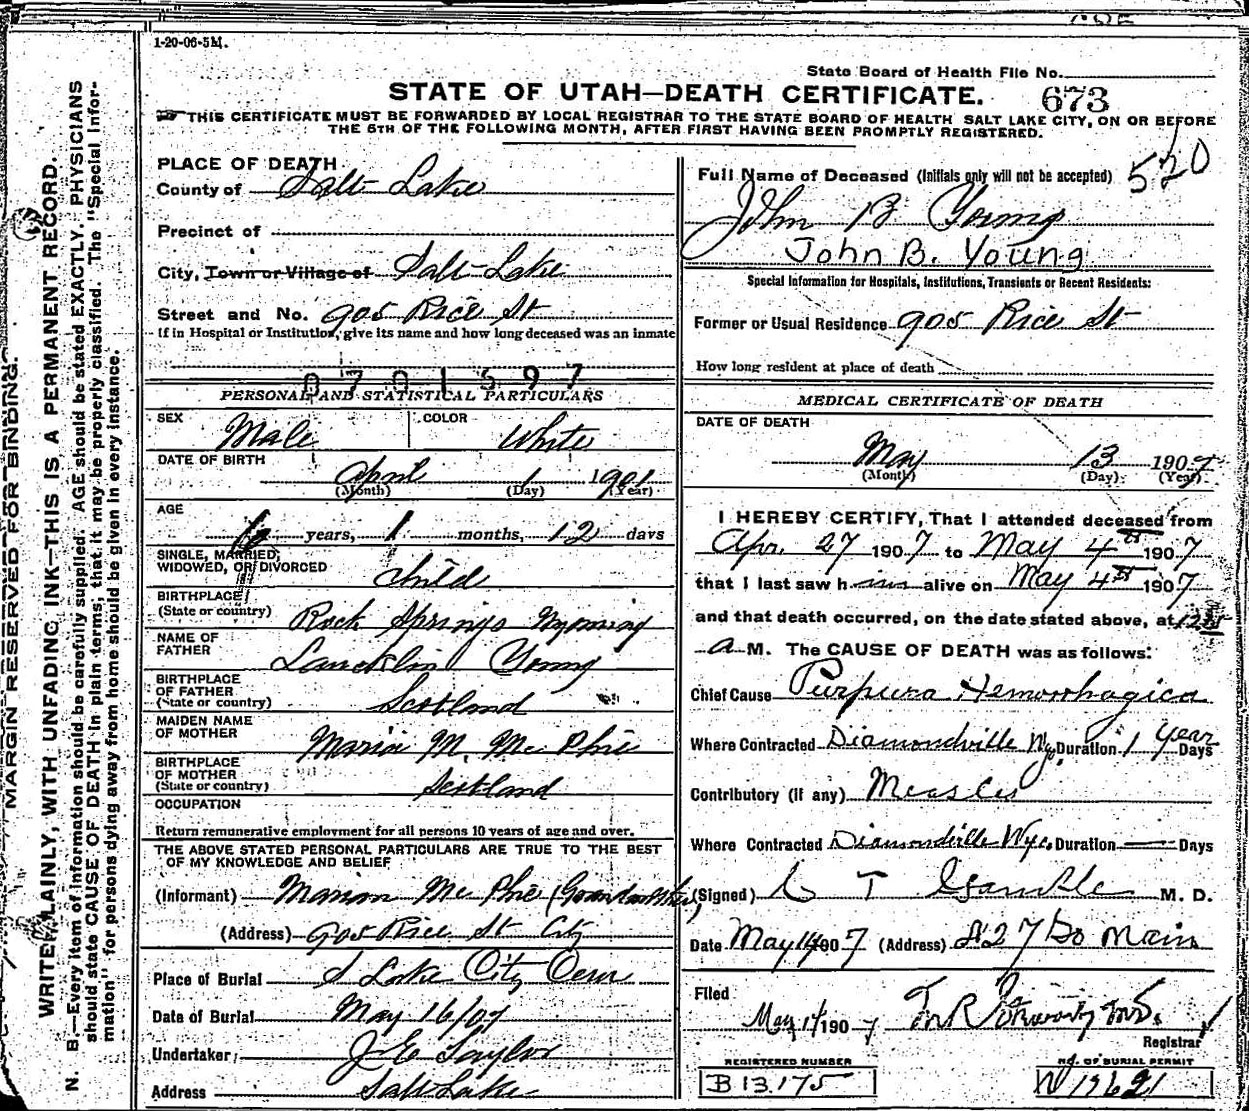 1-20-06-5M.
State Board of Health File No.
STATE OF UTAH—DEATH CERTIFICATE. 673
THIS CERTIFICATE MUST BE FORWARDED BY LOCAL REGISTRAR TO THE STATE BOARD OF HEALTH SALT LAKE CITY, ON OR BEFORE
THE 5TH OF THE FOLLOWING MONTH, AFTER FIRST HAVING BEEN PROMPTLY REGISTERED.
520
PLACE OF DEATH
County of Salt Lake
Precinct of
City, Town or Village of Salt Lake
Street and No. 905 Rice St
If in Hospital or Institution, give its name and how long deceased was an inmate
0701597
PERSONAL AND STATISTICAL PARTICULARS
SEX Male COLOR White
DATE OF BIRTH
April 1 1901
(Month) (Day) (Year)
AGE
6 years, 1 months, 12 days
SINGLE, MARRIED,
WIDOWED, OR DIVORCED Child
BIRTHPLACE
(State or country) Rock Springs Wyoming
NAME OF
FATHER Laucklin Young
BIRTHPLACE
OF FATHER
(State or country) Scotland
MAIDEN NAME
OF MOTHER Marion M. Mc Phie
BIRTHPLACE
OF MOTHER
(State or country) Scotland
OCCUPATION
Return remunerative employment for all persons 10 years of age and over.
THE ABOVE STATED PERSONAL PARTICULARS ARE TRUE TO THE BEST
OF MY KNOWLEDGE AND BELIEF
(Informant) Marion Mc Phie (Grandmother)
(Address) 905 Rice St City
Place of Burial S Lake City Cem
Date of Burial May 16/07
Undertaker J E Taylor
Address Salt Lake
Full Name of Deceased (Initials only will not be accepted)
John B Young
John B. Young
Special Information for Hospitals, Institutions, Transients or Recent Residents:
Former or Usual Residence 905 Rice St
How long resident at place of death
MEDICAL CERTIFICATE OF DEATH
DATE OF DEATH
May 13 1907
(Month) (Day) (Year)
I HEREBY CERTIFY, That I attended deceased from
Apr. 27 1907 to May 4th 1907
that I last saw him alive on May 4th 1907
and that death occurred, on the date stated above, at
a M. The CAUSE OF DEATH was as follows:
Chief Cause Purpura Hemorrhagica
Where Contracted Diamondville Wyo. Duration 1 year Days
Contributory (if any) Measles
Where Contracted Diamondville Wyo. Duration — Days
(Signed) T M. D.
Date May 14 1907 (Address) So Main
Filed
May 14 1907
Registrar
REGISTERED NUMBER
B 13175
NO. OF BURIAL PERMIT
MARGIN RESERVED FOR BINDING.
WRITE PLAINLY, WITH UNFADING INK—THIS IS A PERMANENT RECORD.
N. B.—Every item of information should be carefully supplied. AGE should be stated EXACTLY. PHYSICIANS
should state CAUSE OF DEATH in plain terms, that it may be properly classified. The "Special Infor-
mation" for persons dying away from home should be given in every instance.